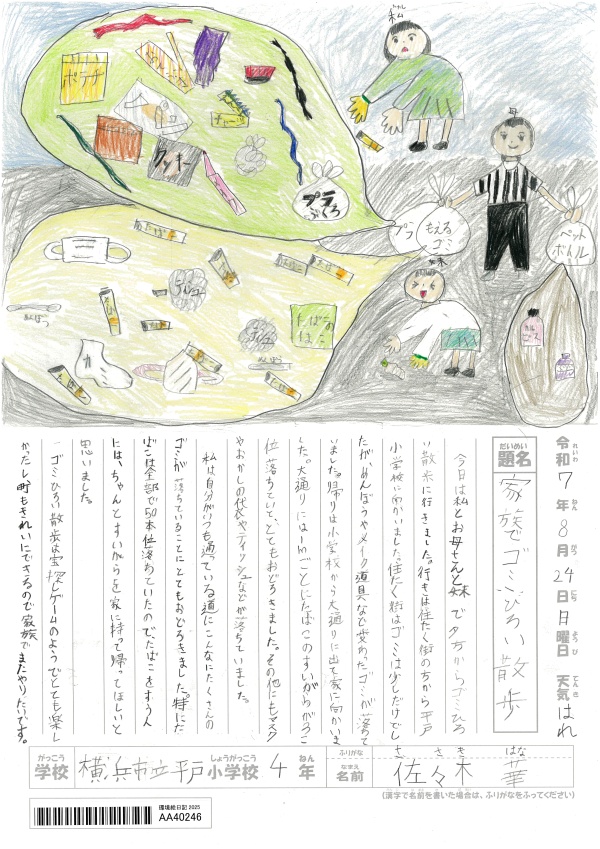 ポテチ
チャーリー
クッキー
プラ
ぶくろ
私
母
プラ
もえる
ゴミ
ペット
ボトル
妹
たばこ
たばこ
ティッシュ
たばこの
はこ
めんぼう
ティッシュ
めんぼう
たばこ
令和7年8月24日日曜日 天気 はれ
れいわ ねん がつ にち ようび てんき
だいめい
題名 家族でゴミひろい散歩
今日は私とお母さんと妹で夕方からゴミひろ
い散歩に行きました。行きは住たく街の方から平戸
小学校に向かいました。住たく街はゴミは少しだけでし
たが、めんぼうやメイク道具など変わったゴミが落ちて
いました。帰りは小学校から大通りに出て家に向かいま
した。大通りには1mごとにたばこのすいがらが5こ
位落ちていて、とてもおどろきました。その他にもマスク
やおかしの袋やティッシュなどが落ちていました。
私は自分がいつも通っている道にこんなにたくさんの
ゴミが落ちていることにとてもおどろきました。特にた
ばこは全部で50本位落ちていたのでたばこをすう人
には、ちゃんとすいがらを家に持って帰ってほしいと
思いました。
ゴミひろい散歩は宝探しゲームのようでとても楽し
かったし町もきれいにできるので家族でまたやりたいです。
がっこう しょうがっこう ねん
学校 横浜市立平戸小学校 4年
ふりがな ささき はな
なまえ
名前 佐々木 華
(漢字で名前を書いた場合は、ふりがなをふってください)
環境絵日記 2025
AA40246